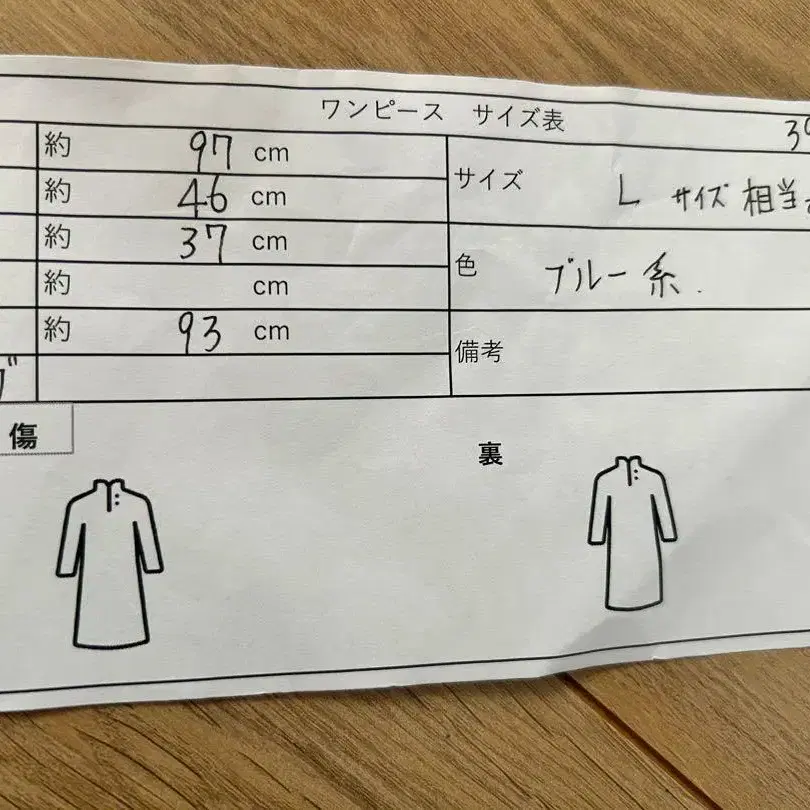 ワンピース サイズ表
約 97 cm
約 46 cm
約 37 cm
約 cm
約 93 cm
サイズ L サイズ 相当
色 ブルー系.
備考
傷
裏